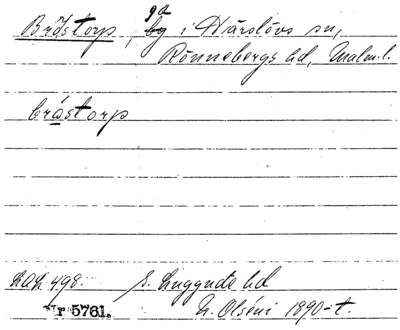 Bråstorp, gd i Härslövs sn,
Rönnebergs hd, Malm.l.
bråstorp
s. Luggude hd
Nr 5761. N. Olséni 1890-t.